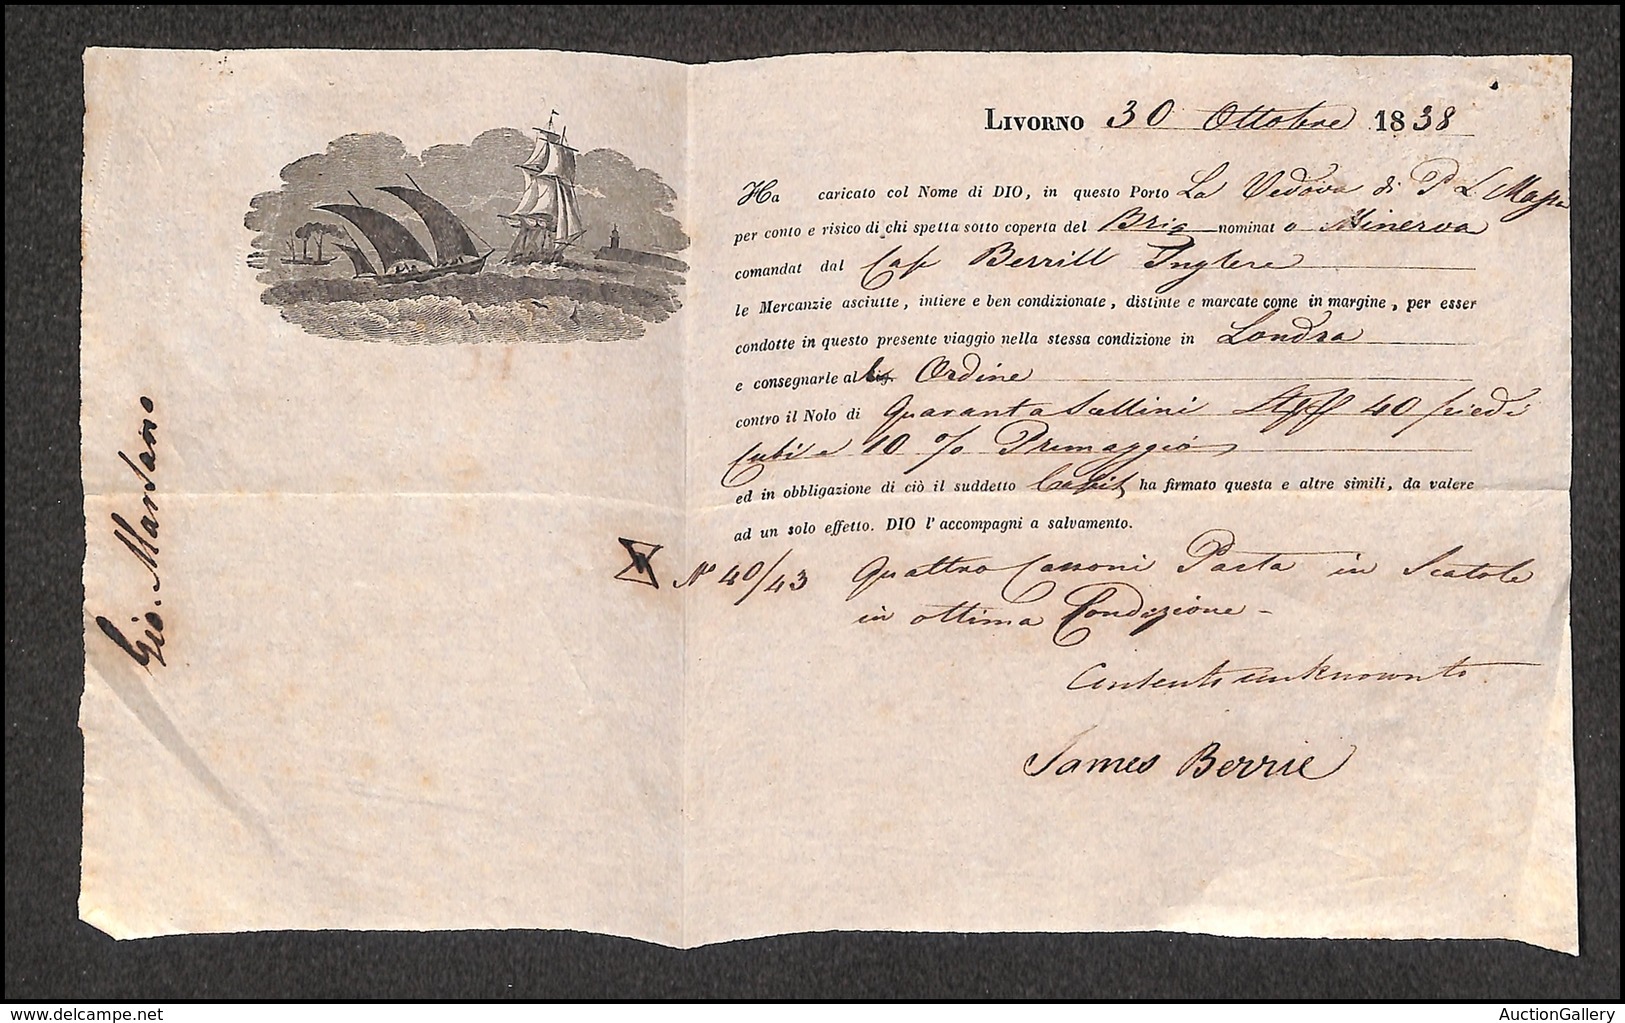 LIVORNO 30 Ottobre 1838
Ha caricato col Nome di DIO, in questo Porto La Vedova di P L Massa
per conto e risico di chi spetta sotto coperta del Brig nominat o Minerva
comandat dal Cap Berrill Inglese
le Mercanzie asciutte, intiere e ben condizionate, distinte e marcate come in margine, per esser
condotte in questo presente viaggio nella stessa condizione in Londra
e consegnarle al Ordine
contro il Nolo di Quaranta Scellini 40 piedi
Cubi e 10 % Primaggio
ed in obbligazione di ciò il suddetto Capit ha firmato questa e altre simili, da valere
ad un solo effetto. DIO l'accompagni a salvamento.
No 40/43 Quattro Cassoni Pasta in Scatole
in ottima Condizione -
James Berrie
Gio. Mansano
delcampe.net
AuctionGallery